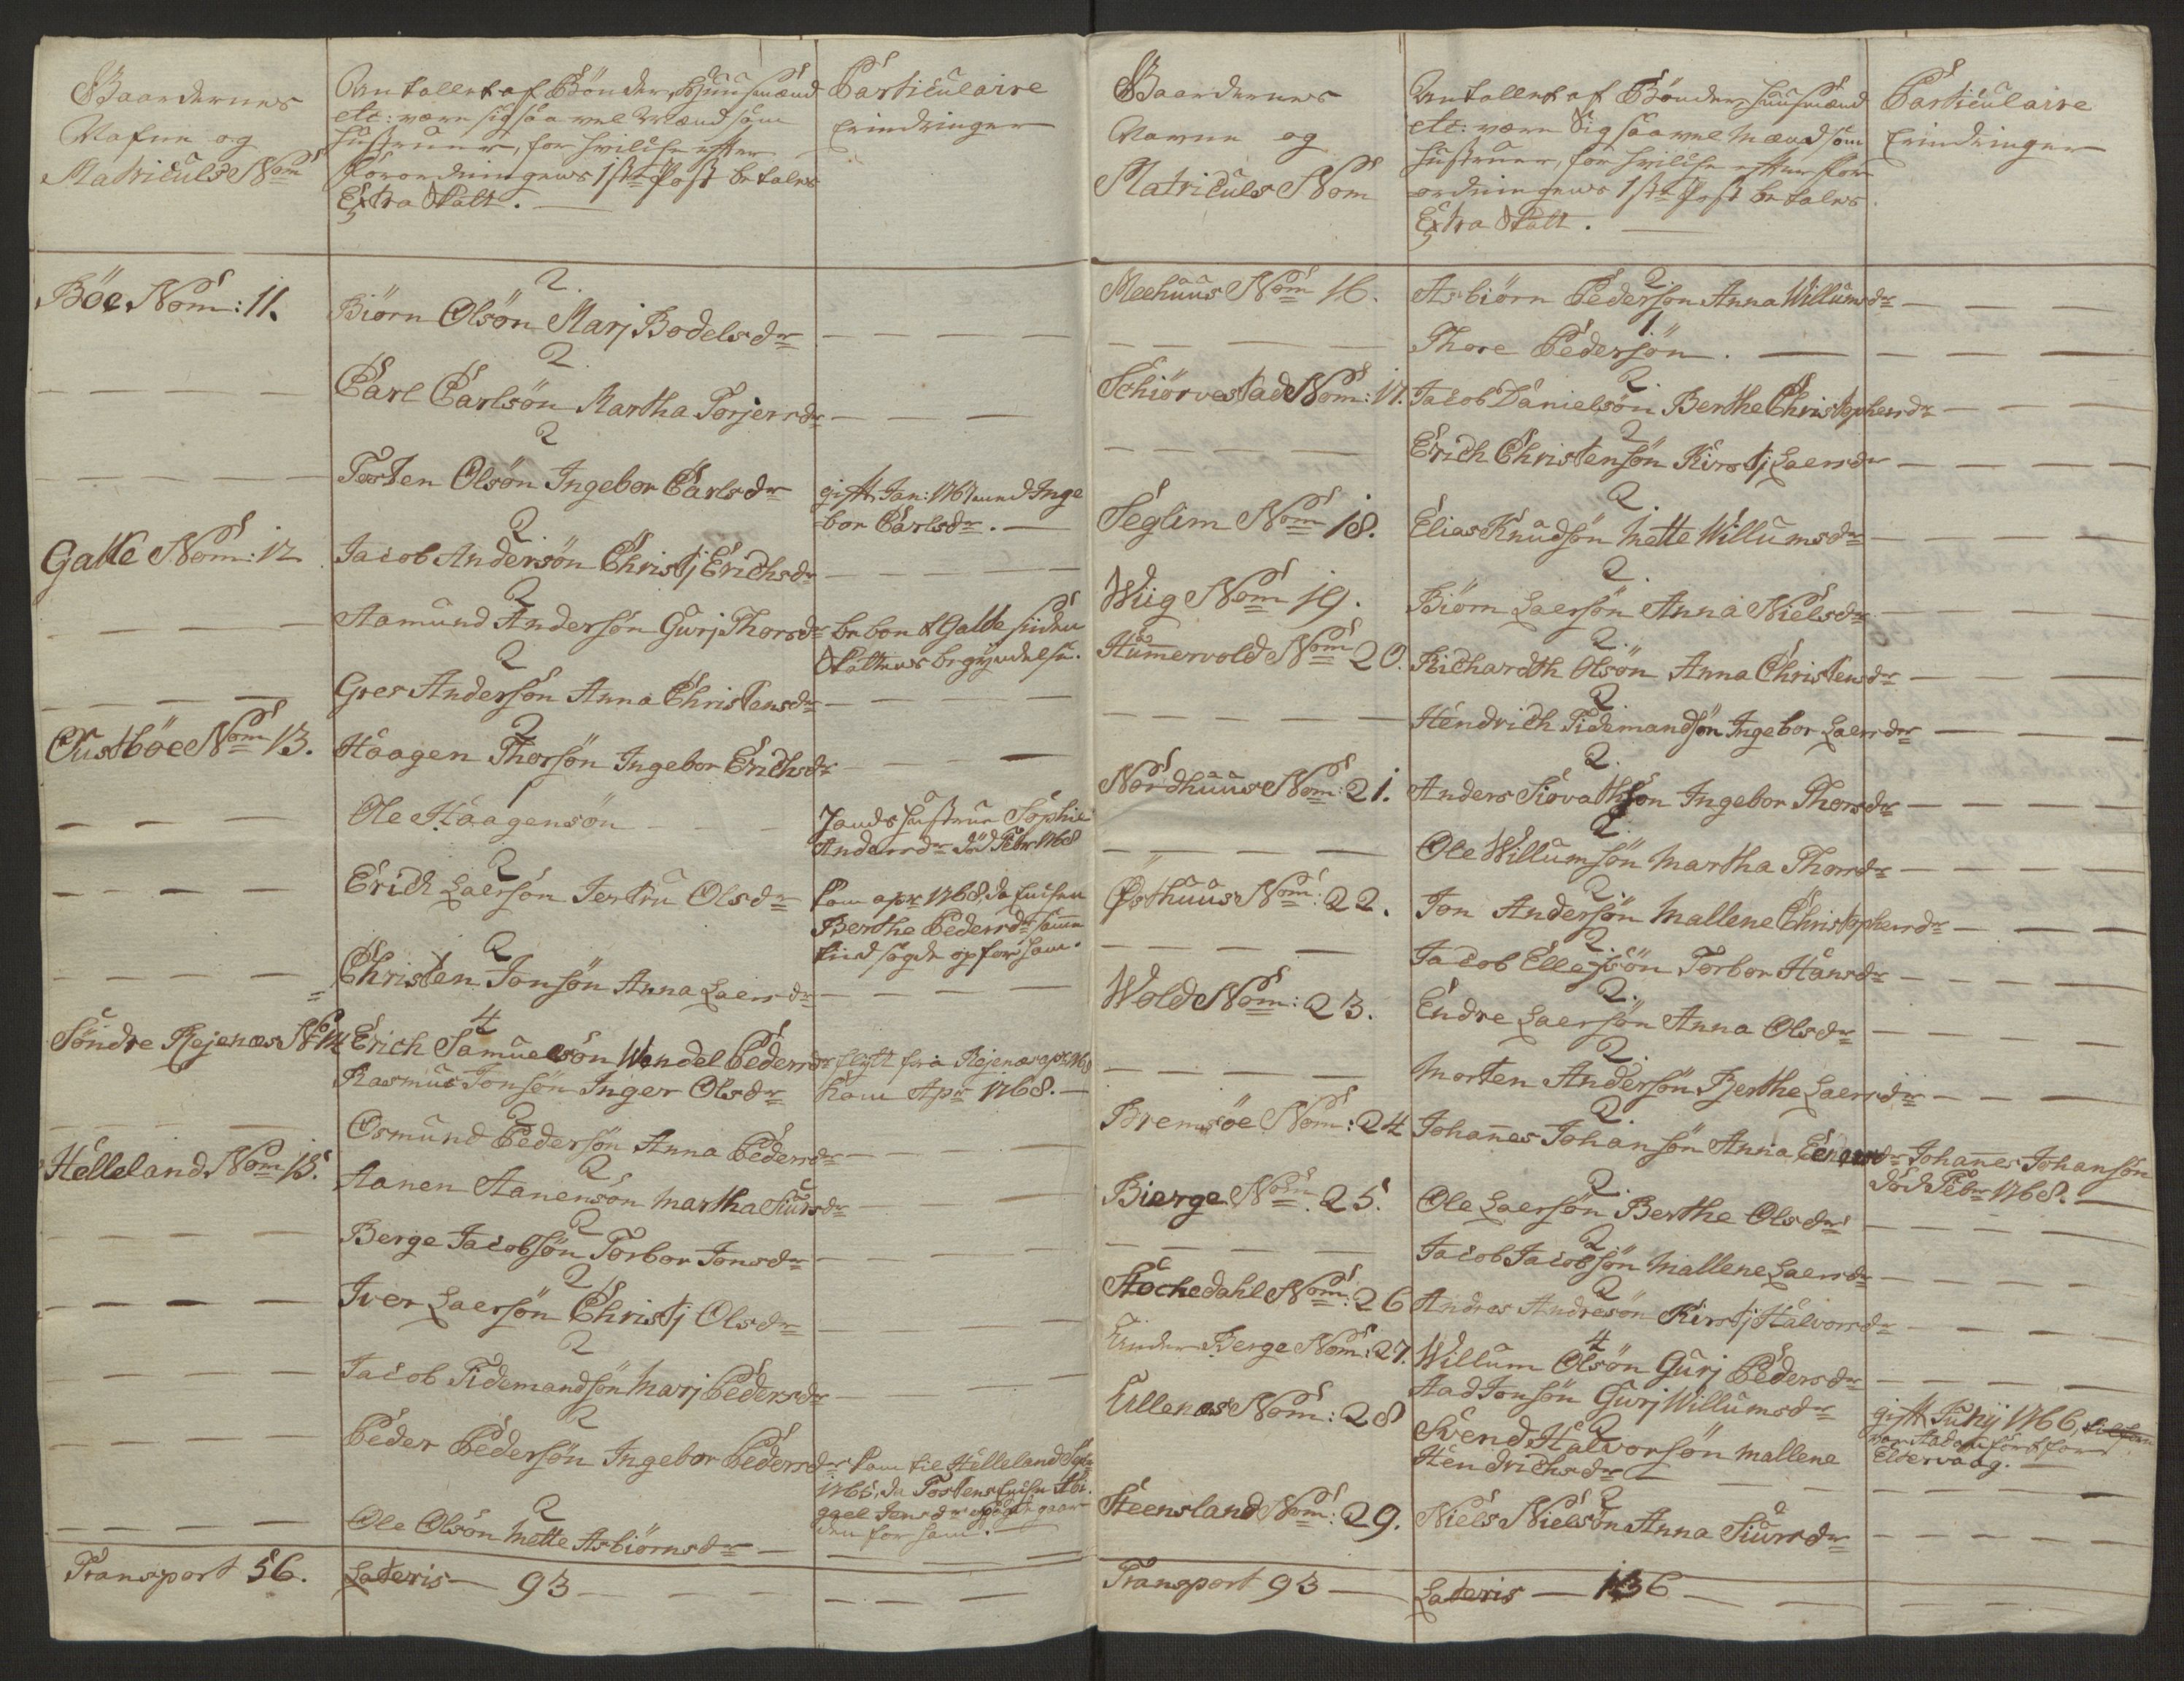 Gaardernes
Nafne og
Matriculs Nom
Antallet af Bönder, Huusmænd
etc: være sig saa vel Mænd som
Hustruer, for hvilche efter
Forordningens 1ste Post betales
Extra Skatt.
Particulaire
Erindringer
Böe Nom: 11.
2.
Biörn Olsön Marj Bodelsdr
2.
Carl Carlsön Martha Torjersdr
2
Tosten Olsön Ingebor Carlsdr
gift Jan: 1767 med Inge
bor Carlsdr.
Galte Nom: 12
2.
Jacob Andersön Christj Erichsdr
2
Aamund Andersön Gurj Thorsdr
beboer Galte siden
Skattens begyndelse.
2
Gres Andersön Anna Christensdr
Custböe Nom 13.
2
Haagen Thorsön Ingebor Erichsdr
1
Ole Haagensön
hands hustrue Sophie
Andersdr död Febr 1768
2
Erich Laersön Jertru Olsdr
kom apr 1768, da Enchen
Berthe Pedersdr samme
tiid sagde op for ham.
2
Christen Jonsön Anna Laersdr
Söndre Rejenæs N 14
4
Erich Samuelsön Wendel Pedersdr
flytt fra Rejenæs apr 1768
Rasmus Jonsön Inger Olsdr
kom Apr 1768.
2
Osmund Pedersön Anna Pedersdr
Helleland Nom 15.
2
Aanen Aanensön Martha Siursdr
2
Berge Jacobsön Torbor Jonsdr
2
Iver Laersön Christj Olsdr
2
Jacob Tidemandsön Marj Pedersdr
2
Peder Pedersön Ingebor Pedersdr
kom til Helleland Sept
1765, da Tostens Enche Abi-
gael Jensdr opsagde gaar
den for ham.
2
Ole Olsön Mette Asbiörnsdr
Transport 56.
Lateris 93
Gaardernes
Navne og
Matriculs Nom
Antallet af Bönder, Huusmænd
etc: være sig saavel Mænd som
Hustruer, for hvilche efter For
ordningens 1ste Post betales
Extra Skatt.
Particulaire
Erindringer
Meehuus Nom 16.
2
Asbiörn Pedersön Anna Willumsdr
1.
Thore Pedersön.
Schiörvestad Nom: 17.
2.
Jacob Danielsön Berthe Christophersdr
2
Erich Christensön Kirstj Laersdr
Seglim Nom 18.
2.
Elias Knudsön Mette Willumsdr
Wiig Nom 19.
2.
Biörn Laersön Anna Nielsdr
Hammervold Nom 20.
2.
Richardth Olsön Anna Christensdr
2.
Hendrich Tidemandsön Ingebor Laersdr
Nordhuus Nom: 21.
2.
Anders Siovathsön Ingebor Thorsdr
2.
Ole Willumsön Martha Thorsdr
Østhuus Nom: 22.
2.
Jon Andersön Mallene Christophersdr
2.
Jacob Ellefsön Torbor Hansdr
Wold Nom: 23.
2.
Endre Laersön Anna Olsdr
2.
Morten Andersön Berthe Laersdr
Bremsöe Nom: 24
2.
Johannes Johansön Anna Einersdr
Johannes Johansön
död Febr 1768.
Bierge Nom. 25.
2.
Ole Laersön Berthe Olsdr
2
Jacob Jacobsön Mallene Laersdr
Stochedahl Nom: 26
2
Andres Andresön Kirstj Halvorsdr
Under Berge Nom: 27.
4
Willum Olsön Gurj Pedersdr
Aad Jonsön Gurj Willumsdr
gift Junij 1766,
Eldervaag.
Ullenæs Nom: 28
2
Svend Halvorsön Mallene
Hendrichsdr
Steensland Nom: 29.
2
Niels Nielsön Anna Siursdr
Transport 93
Lateris 136